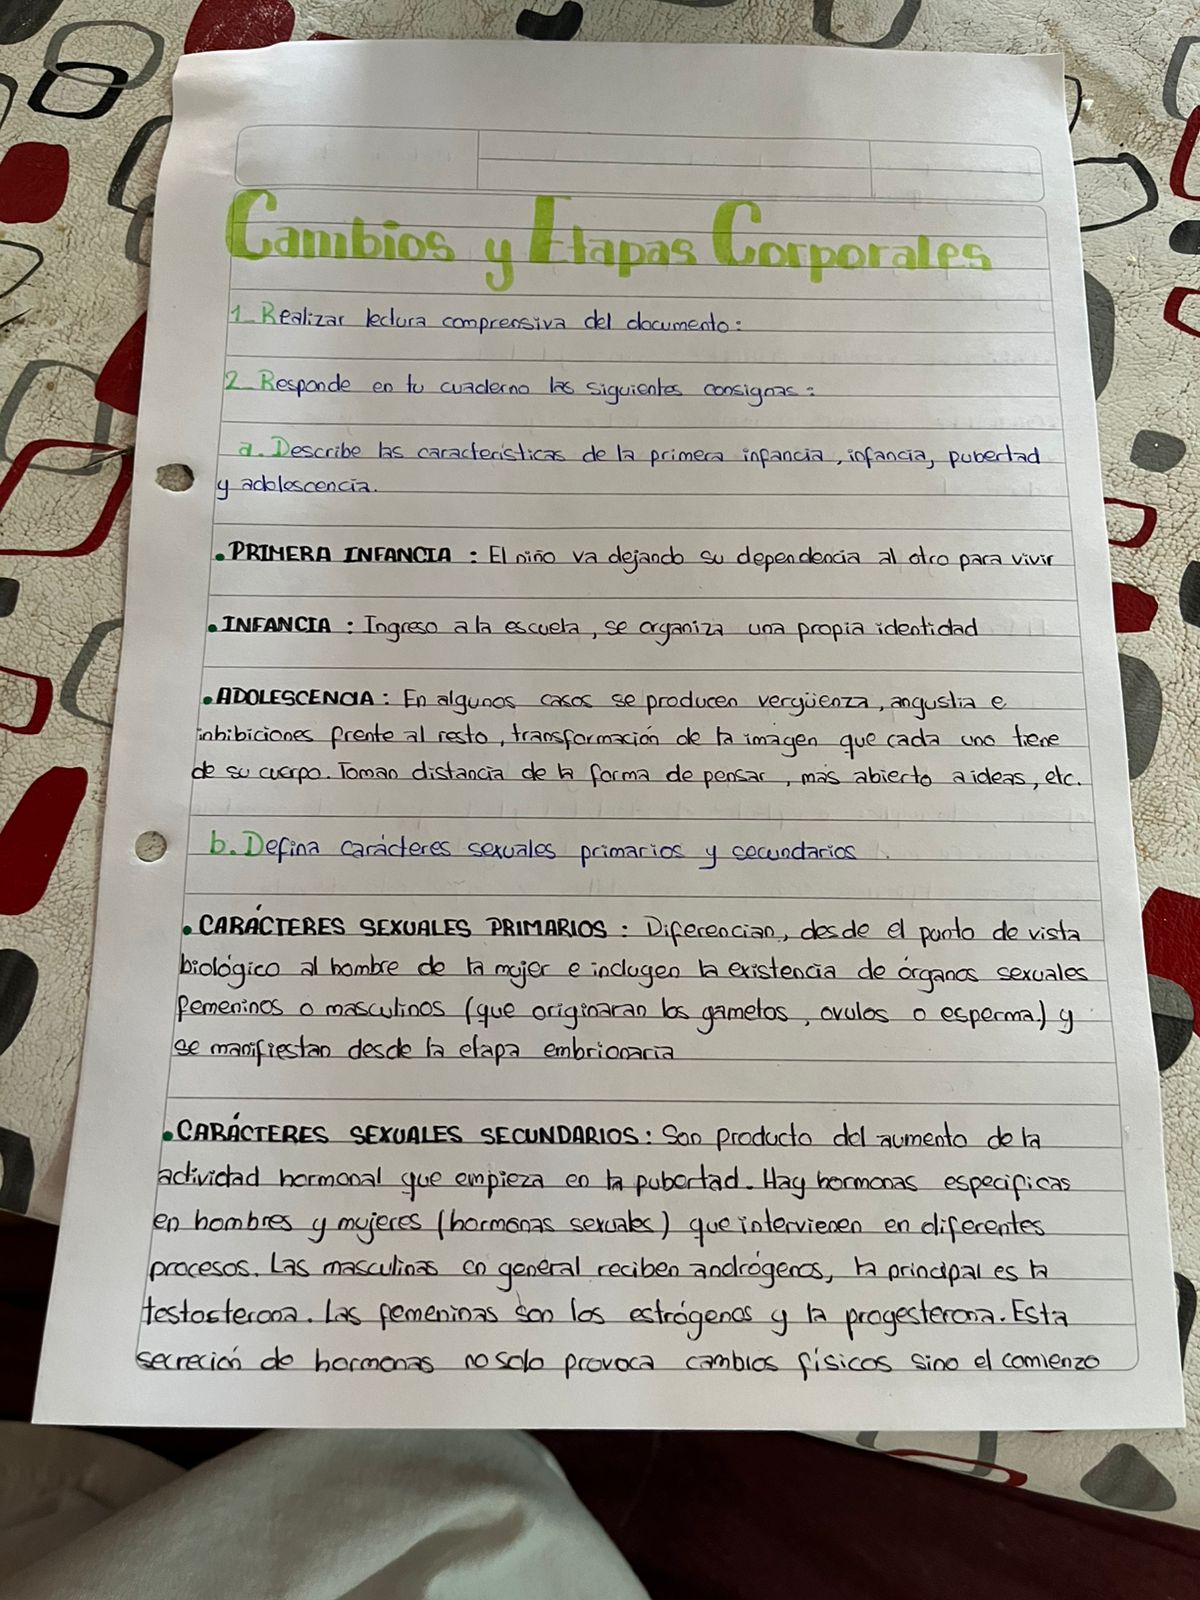 Cambios y Etapas Corporales
1_Realizar lectura comprensiva del documento:
2_Responde en tu cuaderno las siguientes consignas:
a. Describe las características de la primera infancia, infancia, pubertad
y adolescencia.
• PRIMERA INFANCIA : El niño va dejando su dependencia al otro para vivir
• INFANCIA : Ingreso a la escuela, se organiza una propia identidad
• ADOLESCENCIA : En algunos casos se producen vergüenza, angustia e
inhibiciones frente al resto, transformación de la imagen que cada uno tiene
de su cuerpo. Toman distancia de la forma de pensar, más abierto a ideas, etc.
b. Defina carácteres sexuales primarios y secundarios
• CARÁCTERES SEXUALES PRIMARIOS : Diferencian, desde el punto de vista
biológico al hombre de la mujer e incluyen la existencia de órganos sexuales
femeninos o masculinos (que originaran los gametos, ovulos o esperma) y
se manifiestan desde la etapa embrionaria
• CARÁCTERES SEXUALES SECUNDARIOS : Son producto del aumento de la
actividad hormonal que empieza en la pubertad. Hay hormonas especificas
en hombres y mujeres (hormonas sexuales) que intervienen en diferentes
procesos. Las masculinas en general reciben andrógenos, la principal es la
testosterona. Las femeninas son los estrógenos y la progesterona. Esta
secreción de hormonas no solo provoca cambios físicos sino el comienzo